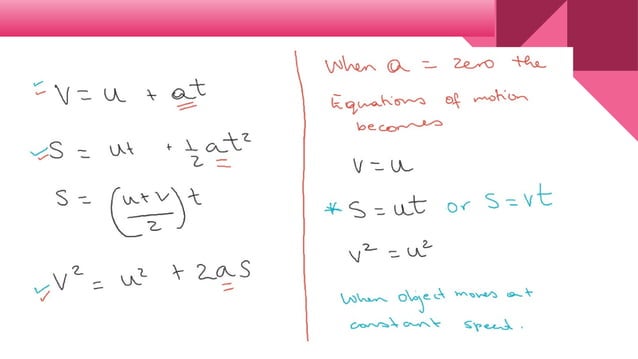 V = u + at
S = ut + 1/2 at²
S = ((u+v)/2) t
V² = u² + 2as
When a = zero the
Equations of motion
becomes
V = u
* S = ut or S = vt
V² = u²
When object moves at
constant speed.